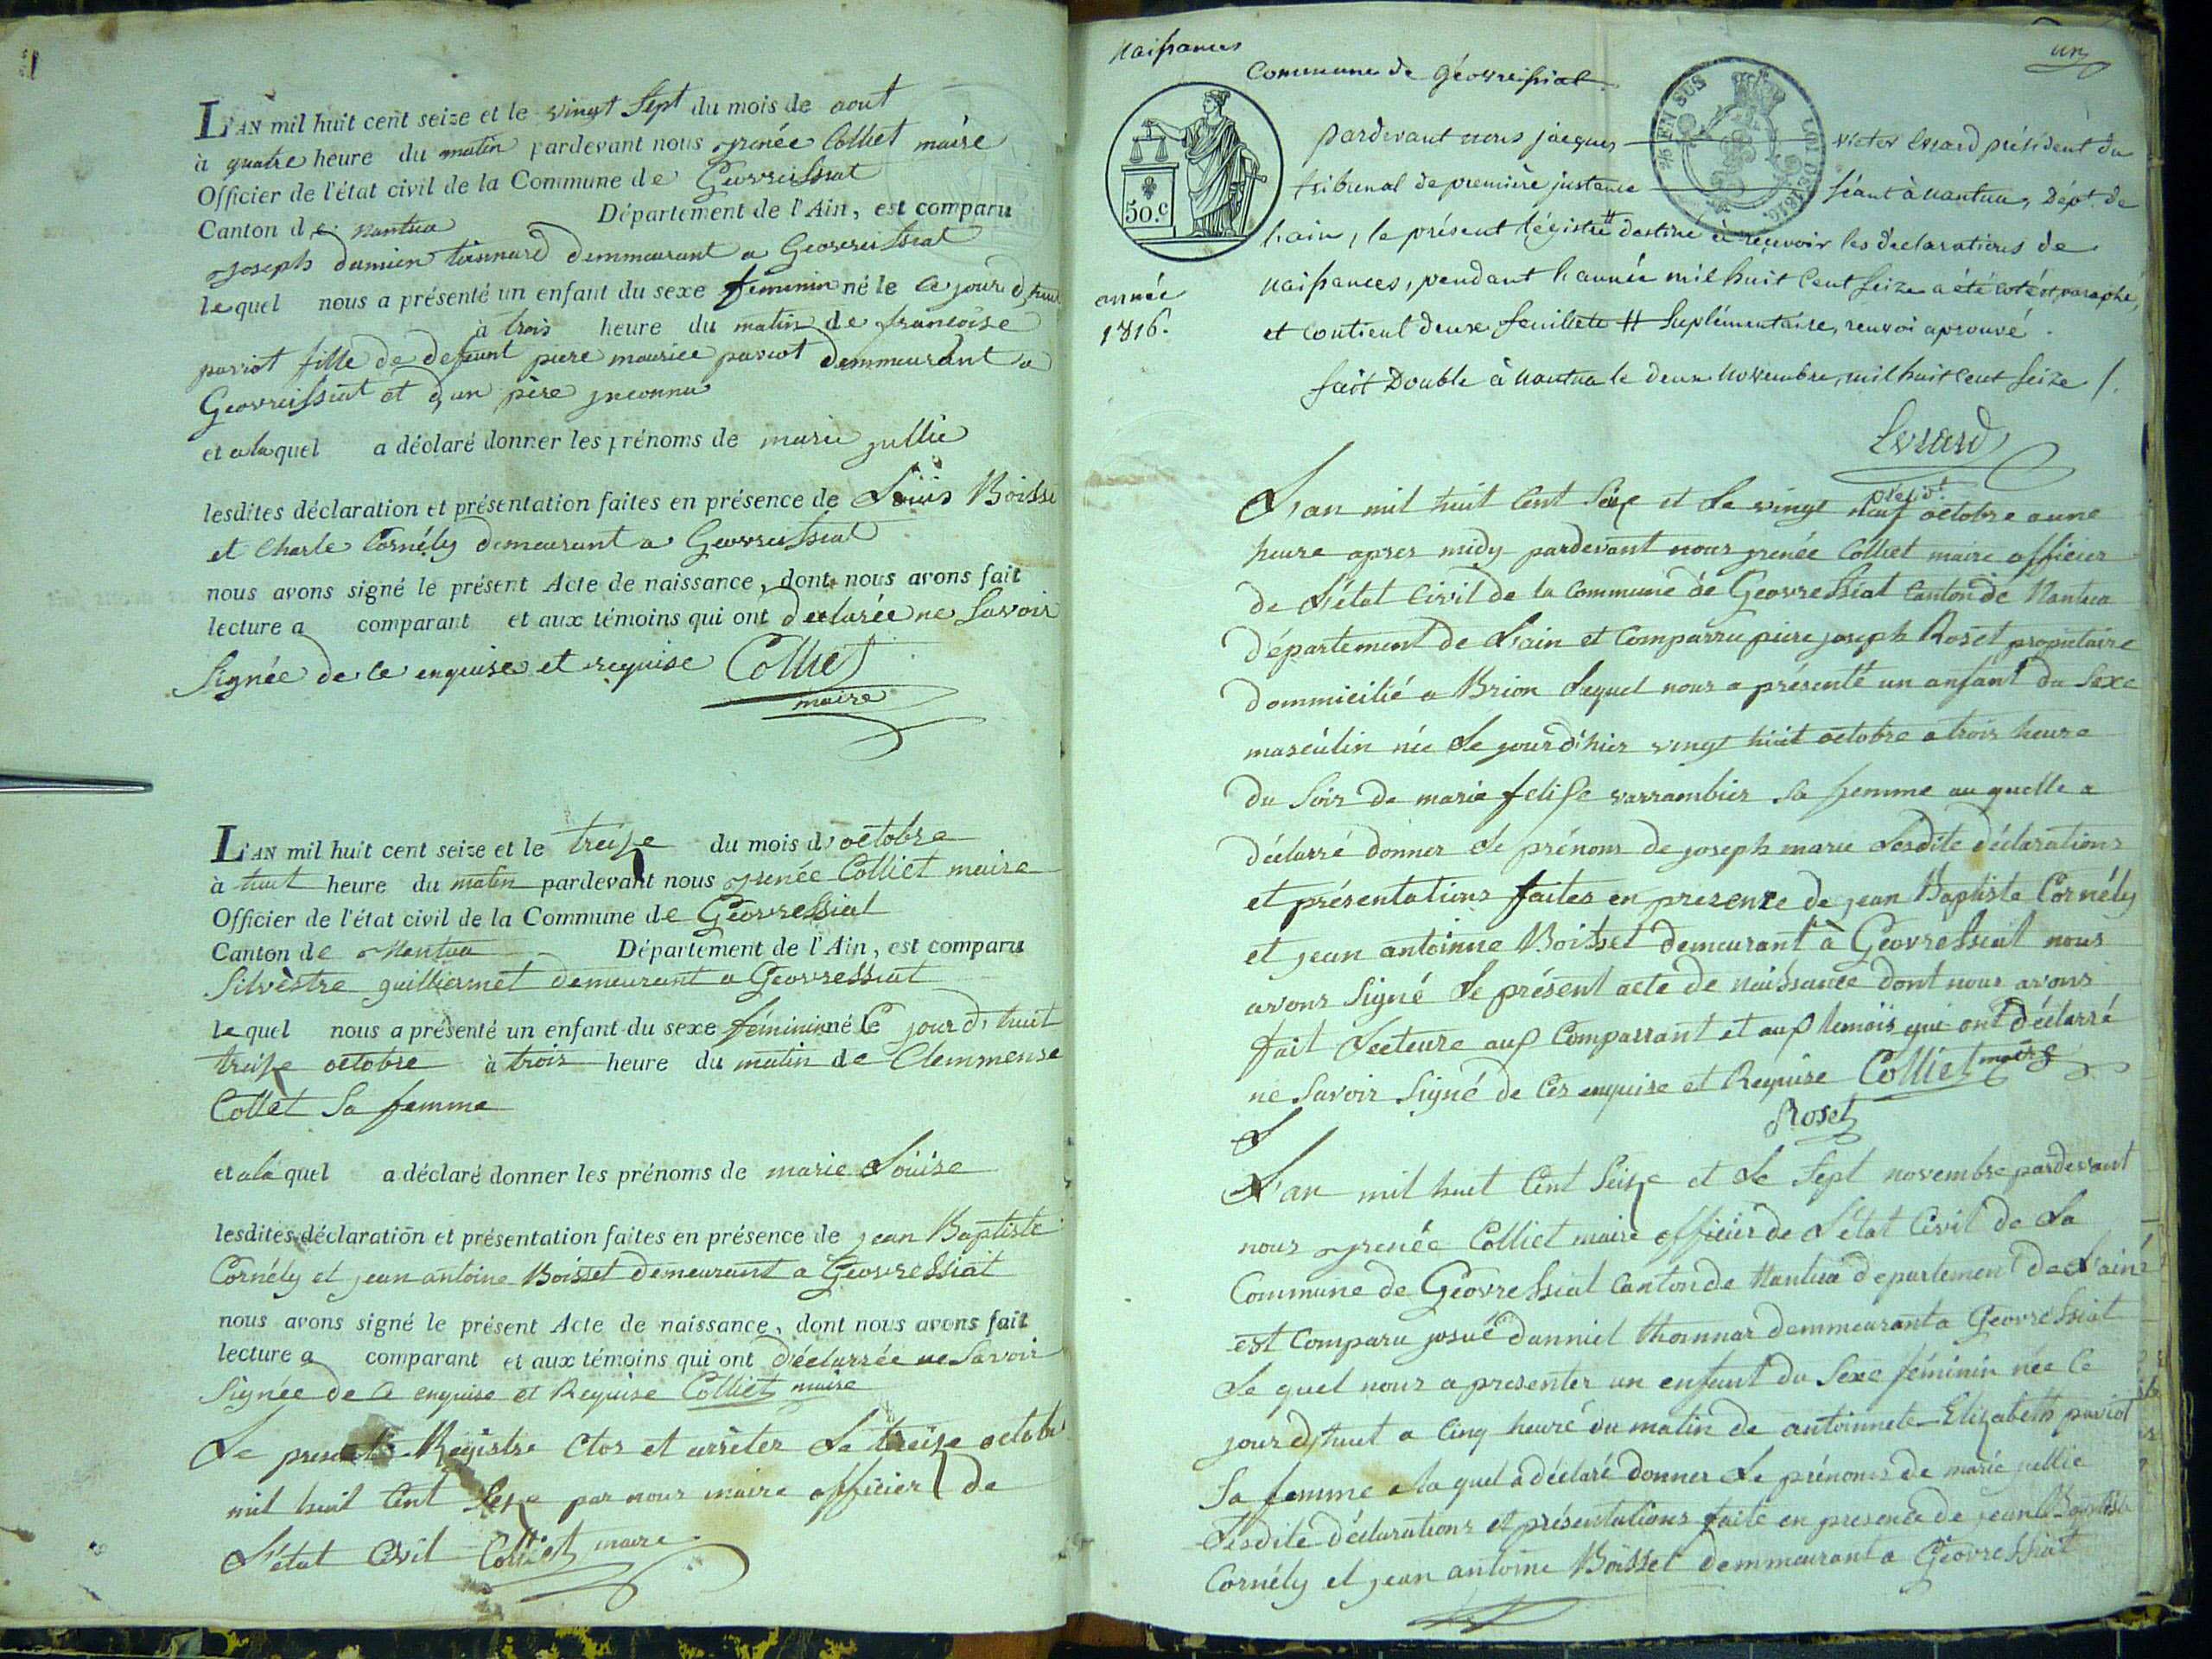 L'AN mil huit cent seize et le vingt Sept du mois de aout
à quatre heure du matin pardevant nous Irenée Colliet maire
Officier de l'état civil de la Commune de Geovreissiat
Canton de Nantua Département de l'Ain, est comparu
Joseph damien toinnard demmeurant a Geovreissiat
lequel nous a présenté un enfant du sexe feminin né le ce jour d'huit
à trois heure du matin de francoise
pariot fille de defeunt piere maurice pariot demmeurant a
Geovreissiat et d'un père jnconnu
et a laquel a déclaré donner les prénoms de marie jullie
lesdites déclaration et présentation faites en présence de Louis Boisse
et Charle Cornély demeurant a Geovreissiat
nous avons signé le présent Acte de naissance, dont nous avons fait
lecture a comparant et aux témoins qui ont declarée ne Savoir
Signée de ce enquise et requise Colliet
maire
L'AN mil huit cent seize et le treize du mois d'octobre
à huit heure du matin pardevant nous Irenée Colliet maire
Officier de l'état civil de la Commune de Géovressiat
Canton de Nantua Département de l'Ain, est comparu
Silvèstre guilliermet demeurant a Geovressiat
lequel nous a présenté un enfant du sexe féminin né le ce jour d'huit
treize octobre à trois heure du matin de Clemmense
Collet Sa femme
et a la quel a déclaré donner les prénoms de marie Louise
lesdites déclaration et présentation faites en présence de jean Baptiste
Cornély et jean antoine Boisset demeurant a Geovressiat
nous avons signé le présent Acte de naissance, dont nous avons fait
lecture a comparant et aux témoins qui ont déclarrée ne Savoir
Signée de ce enquise et Requise Colliet maire
Le present Registre Clos et arrêter Le treize octobre
mil huit Cent Seze par nous maire officier de
L'état Civil Colliet maire
un
Naissances
Commune de Géovreissiat.
50.C
EN SUS
LOI DE 1816.
pardevant nous jacques victor Evrard président du
tribunal de première jnstance séant à Nantua, Dépt. de
l'ain, le présent régistre # destiné à reçevoir les declarations de
Naissances, pendant l'année mil huit Cent Seize a été coté et paraphé,
année
1816.
et contient deux feuillets # Suplémentaire, renvoi aprouvé.
fait Double à Nantua le deux Novembre, mil huit Cent Seize /.
Evrard
présidt.
L'an mil huit Cent Seize et Le vingt neuf octobre a une
heure apres midy pardevant nous jrenée Colliet maire officier
de L'état Civil de la Commune de Geovressiat Canton de Nantua
département de L'ain et Comparru piere joseph Roset propriétaire
dommicilié a Brion Lequel nous a présenté un anfant du Sexe
masculin née Le jour d'hier vingt huit octobre a trois heure
du Soir de marie felise varrambier Sa femme au quelle a
déclarré donner Le prénom de joseph marie Lesdite déclarations
et présentations faites en presence de jean Baptiste Cornély
et jean antoinne Boisset demeurant à Geovressiat nous
avons Signé Le présent acte de naissance dont nous avons
fait Lecteure aux Comparrant et aux temois qui ont déclarré
ne Savoir Signé de Ces enquise et Requise Colliet maire
Roset
L'an mil huet Cent Seize et Le Sept novembre pardevant
nous Irenée Colliet maire officier de L'état Civil de La
Commune de Géovressiat Canton de Nantua departement de L'ain
est Comparu josué danniel thoinnar demmeurant a Geovressiat
Le quel nous a presenter un enfant du Sexe féminin née Ce
jour d'huit a Cinq heure du matin de antoinnete Elizabeth pariot
Sa femme a la quel a déclaré donner Le prénoms de marie jullie
Lesdite déclarations et présentations faite en presence de jean Baptiste
Cornély et jean antoine Boisset demmeurant a Géovressiat